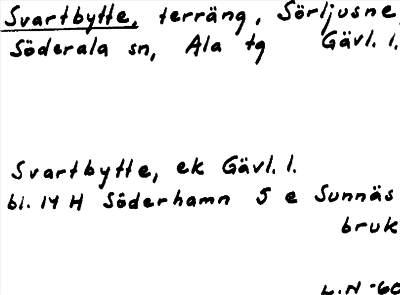 Svartbytte, terräng, Sörljusne,
Söderala sn, Ala tg Gävl. l.
Svartbytte, ek Gävl. l.
bl. 14 H Söderhamn S e Sunnäs
bruk
L.N -60